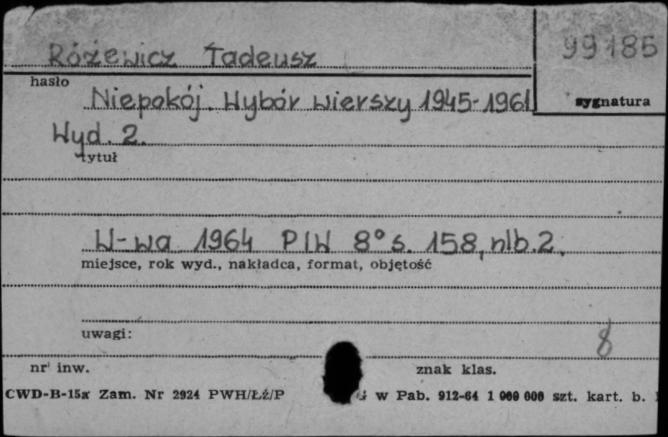 Różewicz Tadeusz
99185
hasło
sygnatura
Niepokój. Wybór wierszy 1945-1961
Wyd. 2.
tytuł
W-wa 1964 PIW 8° s. 158, nlb. 2.
miejsce, rok wyd., nakładca, format, objętość
uwagi:
8
nr inw.
znak klas.
CWD-B-15a Zam. Nr 2924 PWH/Łź/P w Pab. 912-64 1 000 000 szt. kart. b.